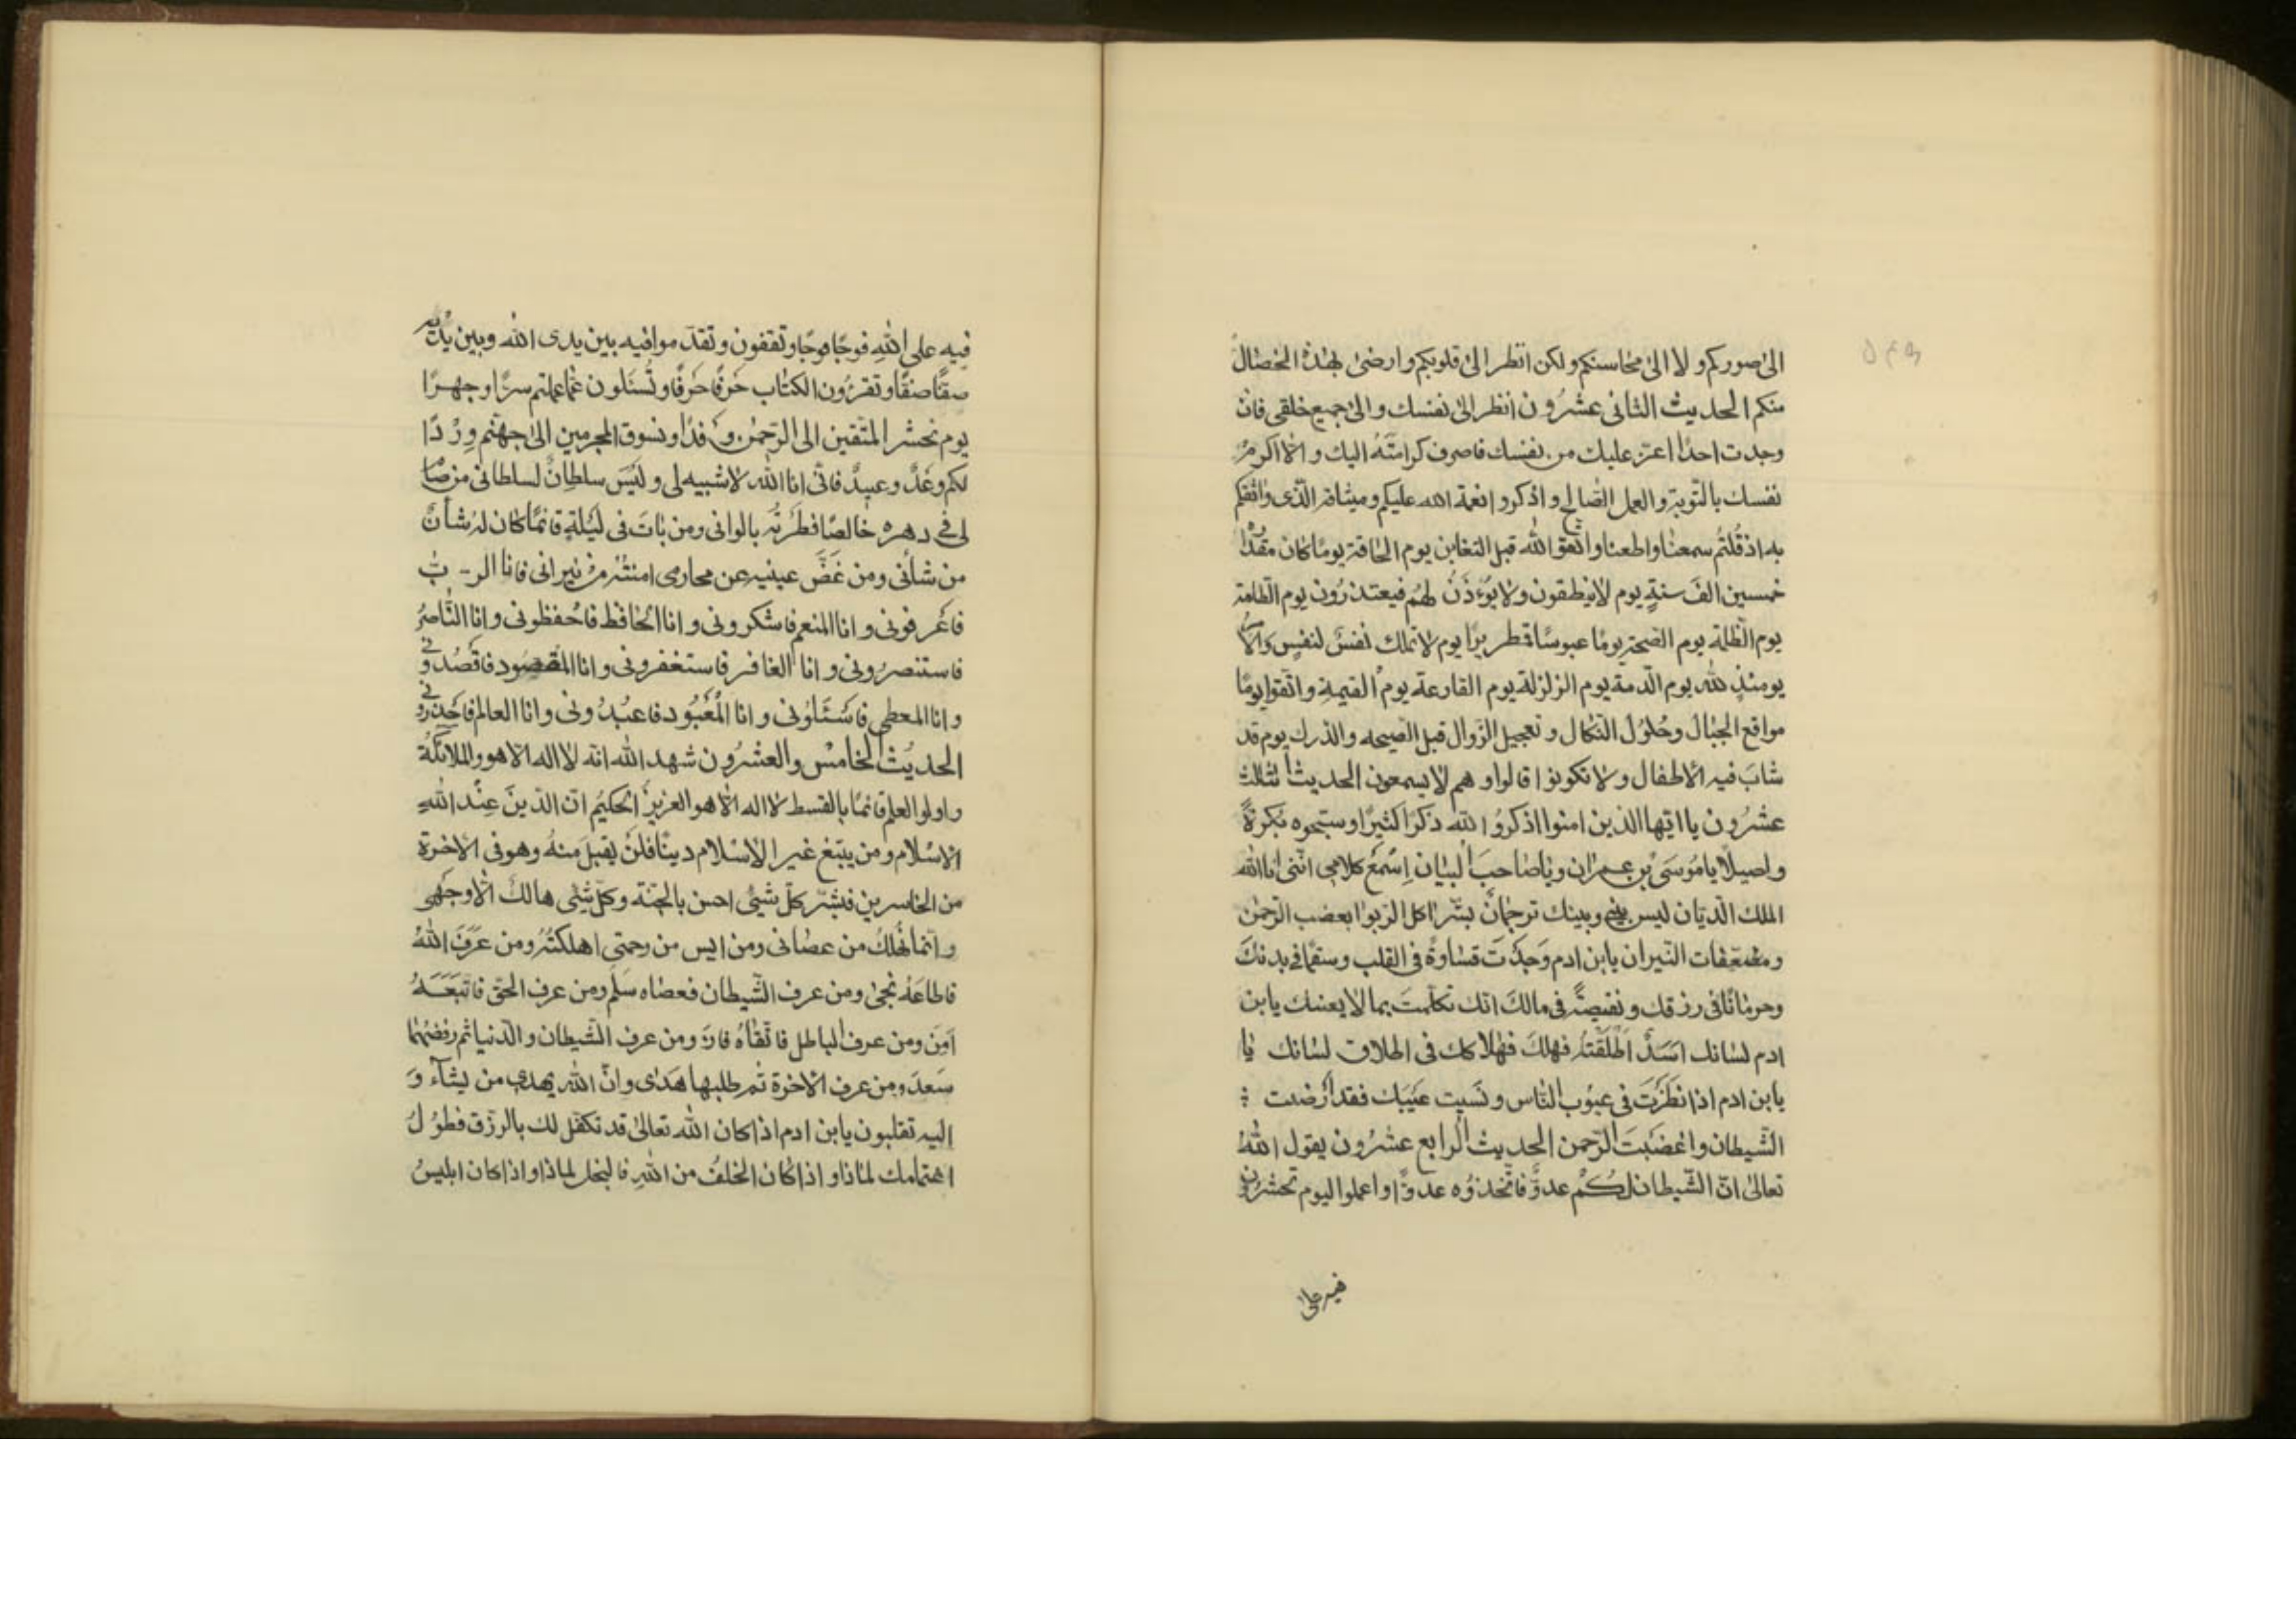 الى صوركم ولا الى محاسنكم ولكن انظر الى قلوبكم وارضى بهذه الخصال
منكم الحديث الثانى عشرون انظر الى نفسك والى جميع خلقى فان
وجدت احدًا اعز عليك من نفسك فاصرف كرامتَهُ اليك والا اكرم
نفسك بالتوبة والعمل الصالح واذكروا نعمة الله عليكم وميثاقه الذى واثقكم
به اذ قُلتُم سمعنا واطعنا واتقوا الله قبل التغابن يوم الحاقة يومًا كان مقداره
خمسين الفَ سنةٍ يوم لا ينطقون ولا يُؤذَنُ لهُم فيعتذرُون يوم الطّامة
يوم الظلمة يوم الصيحة يومًا عبوسًا قمطريرًا يوم لا تملك نفسٌ لنفسٍ والامر
يومئذٍ لله يوم الدمة يوم الزلزلة يوم القارعة يوم القيمة واتّقوا يومًا
مواقع الجبال وحُلوُل النكال وتعجيل الزوال قبل الصيحه والدرك يوم قد
شابَ فيه الاطفال ولا تكونوا قالوا وهم لا يسمعون الحديث الثالث
عشرُون يا ايّها الذين امنوا اذكرُوا الله ذكرًا كثيرًا وسبّحوه بُكرةً
واصيلًا يا مُوسَى بن عمران ويا صاحبَ البيان اِسْمَع كلامى اننى انا الله
الملك الديّان ليس بينى وبينك ترجمانٌ بشّر اكل الربوا بغضب الرّحمن
ومضعّفات النّيران يا بن ادم وَجَدْتَ قساوةً فى القلب وسقمًا فى بدنك
وحرمانًا فى رزقك ونقيصةً فى مالكَ انّك تكلّمتَ بما لا يعنيك يا بن
ادم لسانك اسَدٌ اَطْلَقْتَهُ فهلكَ فهلاكك فى اطلاق لسانك يا
يا بن ادم اذا نَظَرْتَ فى عيُوب النّاس ونَسيِت عَيْبَك فقد ارْضيت
الشّيطان واغضَبْتَ الرّحمن الحديث الرابع عشرُون يقول اللهُ
تعالىٰ انّ الشّيطان لكُم عدوٌّ فاتّخذوُه عدوًّا واعملوا اليوم تحشرُون
فيه على
فيه على اللهِ فوجًا فوجًا وتقفون وتقد موافيه بين يدى الله وبين يديه
صفًّا صفًّا وتقرؤُن الكتاب حَرفًا حَرفًا وتُسئَلون عمّا عملتم سرًّا وجهرًا
يوم نحشر المتّقين الى الرّحمٰن وفدًا ونسوق المجرمين الىٰ جهنّم وِرْدًا
لكم وَعْدٌ وعيدٌ فانّى انا الله لا شبيه لى ولَيْسَ سلطانٌ لسلطانى من صام
لى فى دهره خالصًا فطّرتُه بالوانى ومن باتَ فى لَيْلَةٍ قائمًا كان له شأنٌ
من شأنى ومن غَضَّ عينيه عن محارمى امنتُه من نيرانى فانا الرّبّ
فاعرفونى وانا المنعم فاشكرونى وانا الحافظ فاحفظونى وانا النّاصرُ
فاستنصرُونى وانا الغافر فاستغفرونى وانا المقصود فاقصدونى
وانا المعطى فاسئَلُونى وانا المعْبُود فاعبدُونى وانا العالم فاحذرونى
الحديث الخامس والعشرُون شهد الله انّه لا اله الا هو والملائكةُ
واولوا العلم قائمًا بالقسط لا اله الا هو العزيز الحكيُم انّ الدّينَ عِنْد اللهِ
الاسْلام ومن يبتغ غير الاسْلام دينًا فلَنْ يقبلَ منهُ وهو فى الاخرة
من الخاسرين فبشّر كلّ شيئى احسن بالجنّة وكلّ شيئى هالك الّا وجهى
وانّما نُهلكُ من عصانى ومن ايس من رحمتى اهلكتُهُ ومن عَرَفَ اللهُ
فاطاعَهُ نجىٰ ومن عرف الشّيطان فعصاه سَلِم ومن عرف الحقّ فاتّبعَهُ
اَمِنَ ومن عرف الباطل فاتّقاهُ فازَ ومن عرف الشّيطان والدّنيا ثم رفضهُما
سَعدَ ومن عرف الاخرة ثم طلبها هَدى وانّ الله يهدى من يشآء وَ
اليه تقلبون يا بن ادم اذا كان الله تعالىٰ قد تكفّل لك بالرزق فطُولُ
اهتمامك لماذا واذا كان الخلفُ من اللهِ فالبخل لماذا واذا كان ابليسُ